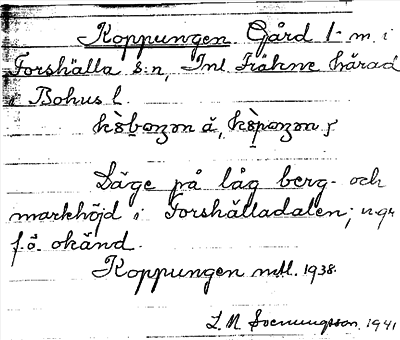 Koppungen. Gård 1- m. i
Forshälla s:n, Inl. Fräkne härad
i Bohus l.
Läge på låg berg- och
markhöjd i Forshälladalen;
f.ö. okänd.
Koppungen mtl. 1938.
L. M. Svenungsson. 1941